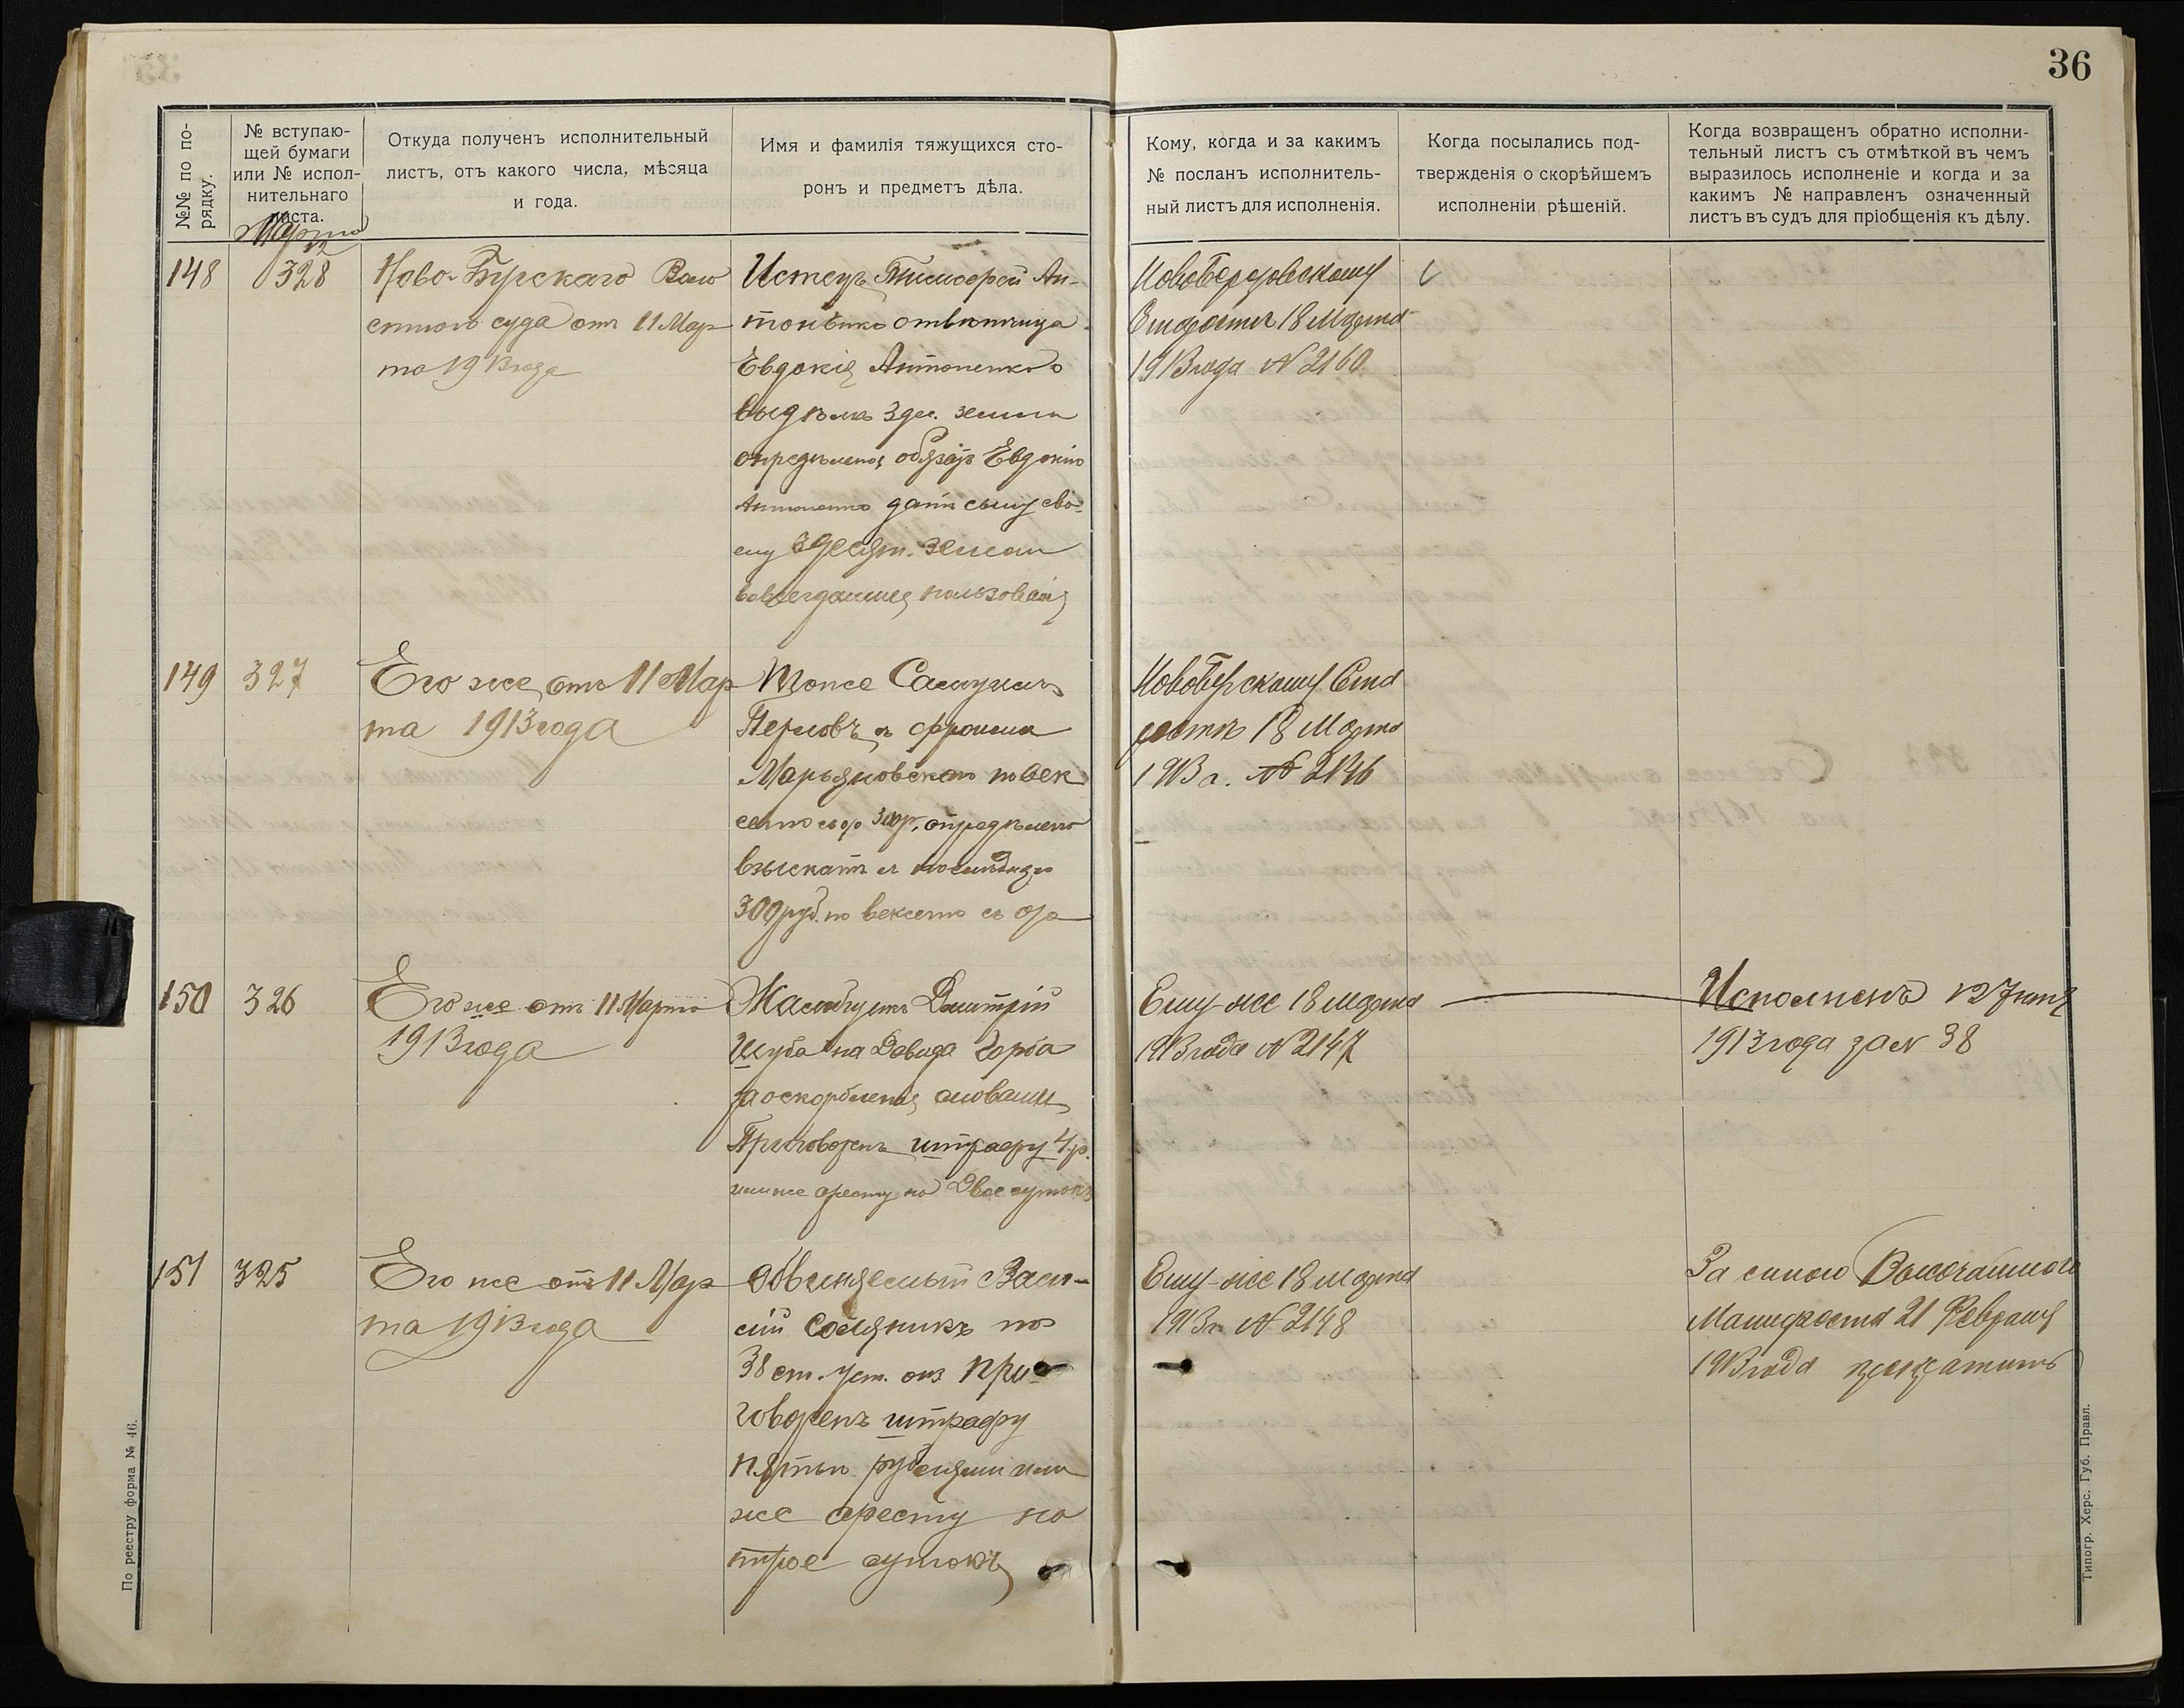 36
№№ по по-
рядку.
№ вступаю-
щей бумаги
или № испол-
нительнаго
листа.
Откуда полученъ исполнительный
листъ, отъ какого числа, мѣсяца
и года.
Имя и фамилія тяжущихся сто-
ронъ и предметъ дѣла.
Кому, когда и за какимъ
№ посланъ исполнитель-
ный листъ для исполненія.
Когда посылались под-
твержденія о скорѣйшемъ
исполненіи рѣшеній.
Когда возвращенъ обратно исполни-
тельный листъ съ отмѣткой въ чемъ
выразилось исполненіе и когда и за
какимъ № направленъ означенный
листъ въ судъ для пріобщенія къ дѣлу.
Марта
148
328
Ново-Бугскаго Воло
стного суда отъ 11 Мар
та 1913 года
Истецъ Тимофей Ан-
тоненко отвѣтчица
Евдокія Антоненко о
выдѣлѣ 3 дес. земли
опредѣлено обязать Евдокію
Антоненко дать сыну сво-
ему 3 десят. земли
вовсегдашнее пользованія
1913 года № 2160
149
327
Его же отъ 11 Мар
та 1913 года
Перловъ съ Фроима
Марьяновскаго по век
селю въ 300 р. опредѣлено
взыскать съ послѣдняго
300 руб. по векселю съ о/о
Новобугскому Ста
ростѣ 18 Марта
1913 г. № 2146
150
326
Его же отъ 11 Марта
1913 года
Жалобщикъ Дмитрій
Шуба на Давида Горба
за оскорбленія словами
Приговоренъ штрафу 4 р.
или же аресту на Двое сутокъ
Ему-же 18 Марта
1913 года № 2147
Исполненъ 12 Iюня
1913 года за № 38
151
325
Его же отъ 11 Мар
та 1913 года
Обвиняемый Васи-
лій Соляникъ по
38 ст. Уст. о нак. При-
говоренъ штрафу
пятью рублями или
же аресту на
трое сутокъ
Ему-же 18 Марта
1913 г. № 2148
За силою Высочайшаго
Манифеста 21 Февраля
1913 года прекратить
По реестру форма № 46.
Типогр. Херс. Губ. Правл.